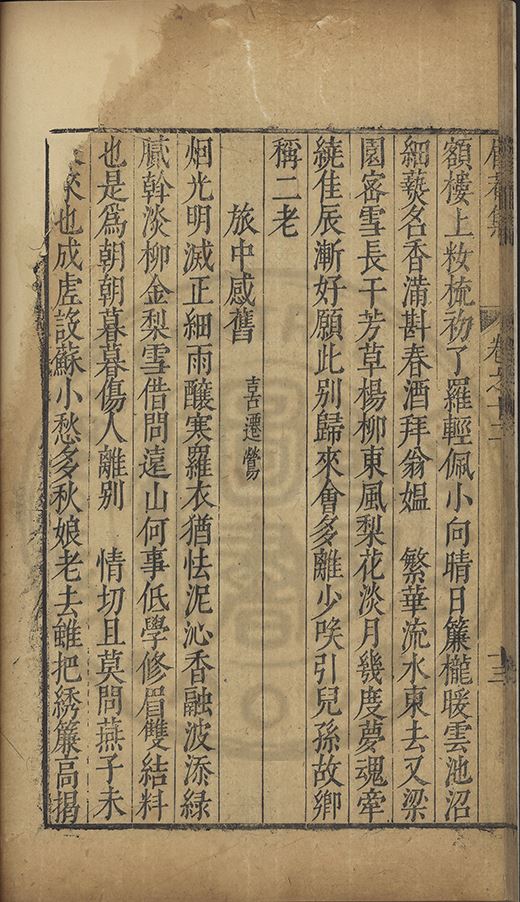 集 卷之十二 十三
額樓上妝梳初了羅輕佩小向晴日簾櫳暖雲池沼
細爇名香滿斟春酒拜翁媼 繁華流水東去又梁
園密雪長干芳草楊柳東風梨花淡月幾度夢魂牽
繞佳辰漸好願此別歸來會多離少唉引兒孫故鄉
稱二老
旅中感舊 喜遷鶯
烟光明滅正細雨釀寒羅衣猶怯泥沁香融波添綠
膩幹淡柳金梨雪借問遠山何事低學修眉雙結料
也是爲朝朝暮暮傷人離别 情切且莫問燕子未
來也成虛設蘇小愁多秋娘老去誰把綉簾高揭